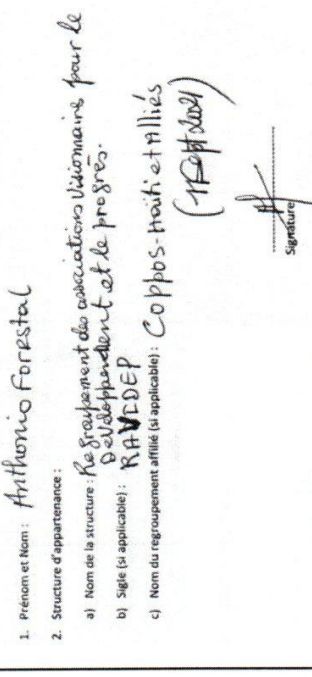 1. Prénom et Nom : Anthonio Forestal
2. Structure d'appartenance :
a) Nom de la structure : Regroupement des associations Visionnaire pour le
Développement et le progrès.
b) Sigle (si applicable) : RAVIDEP
c) Nom du regroupement affilié (si applicable) : Coppos-Haïti et Alliés
Signature